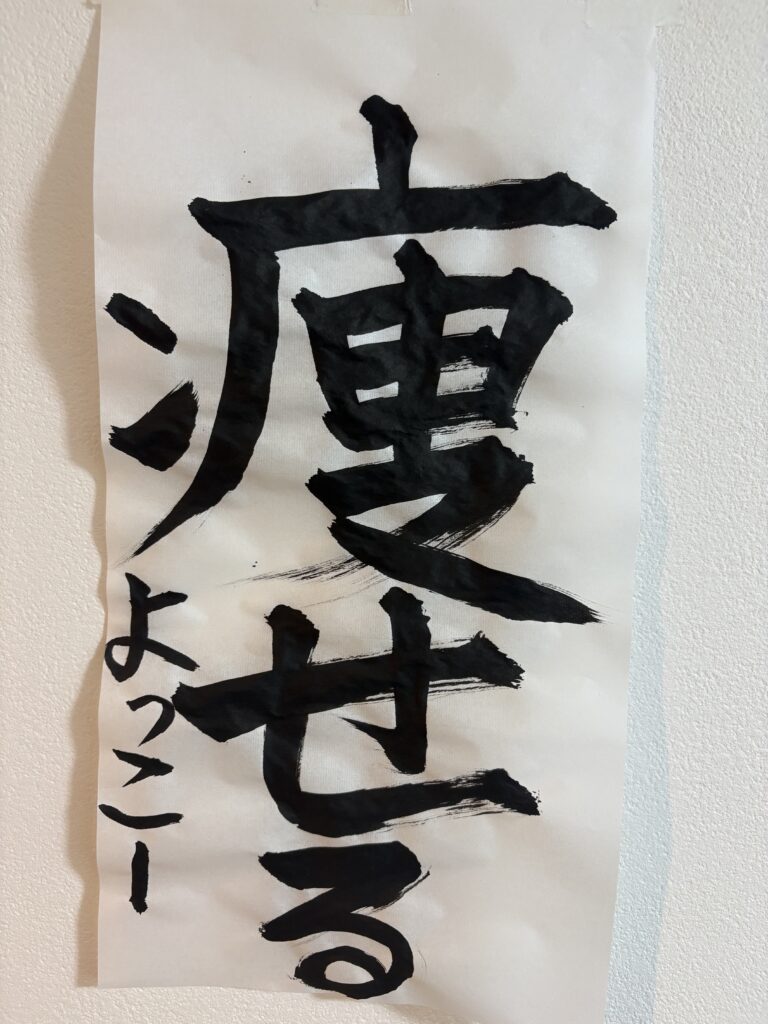 痩せる
よっこー